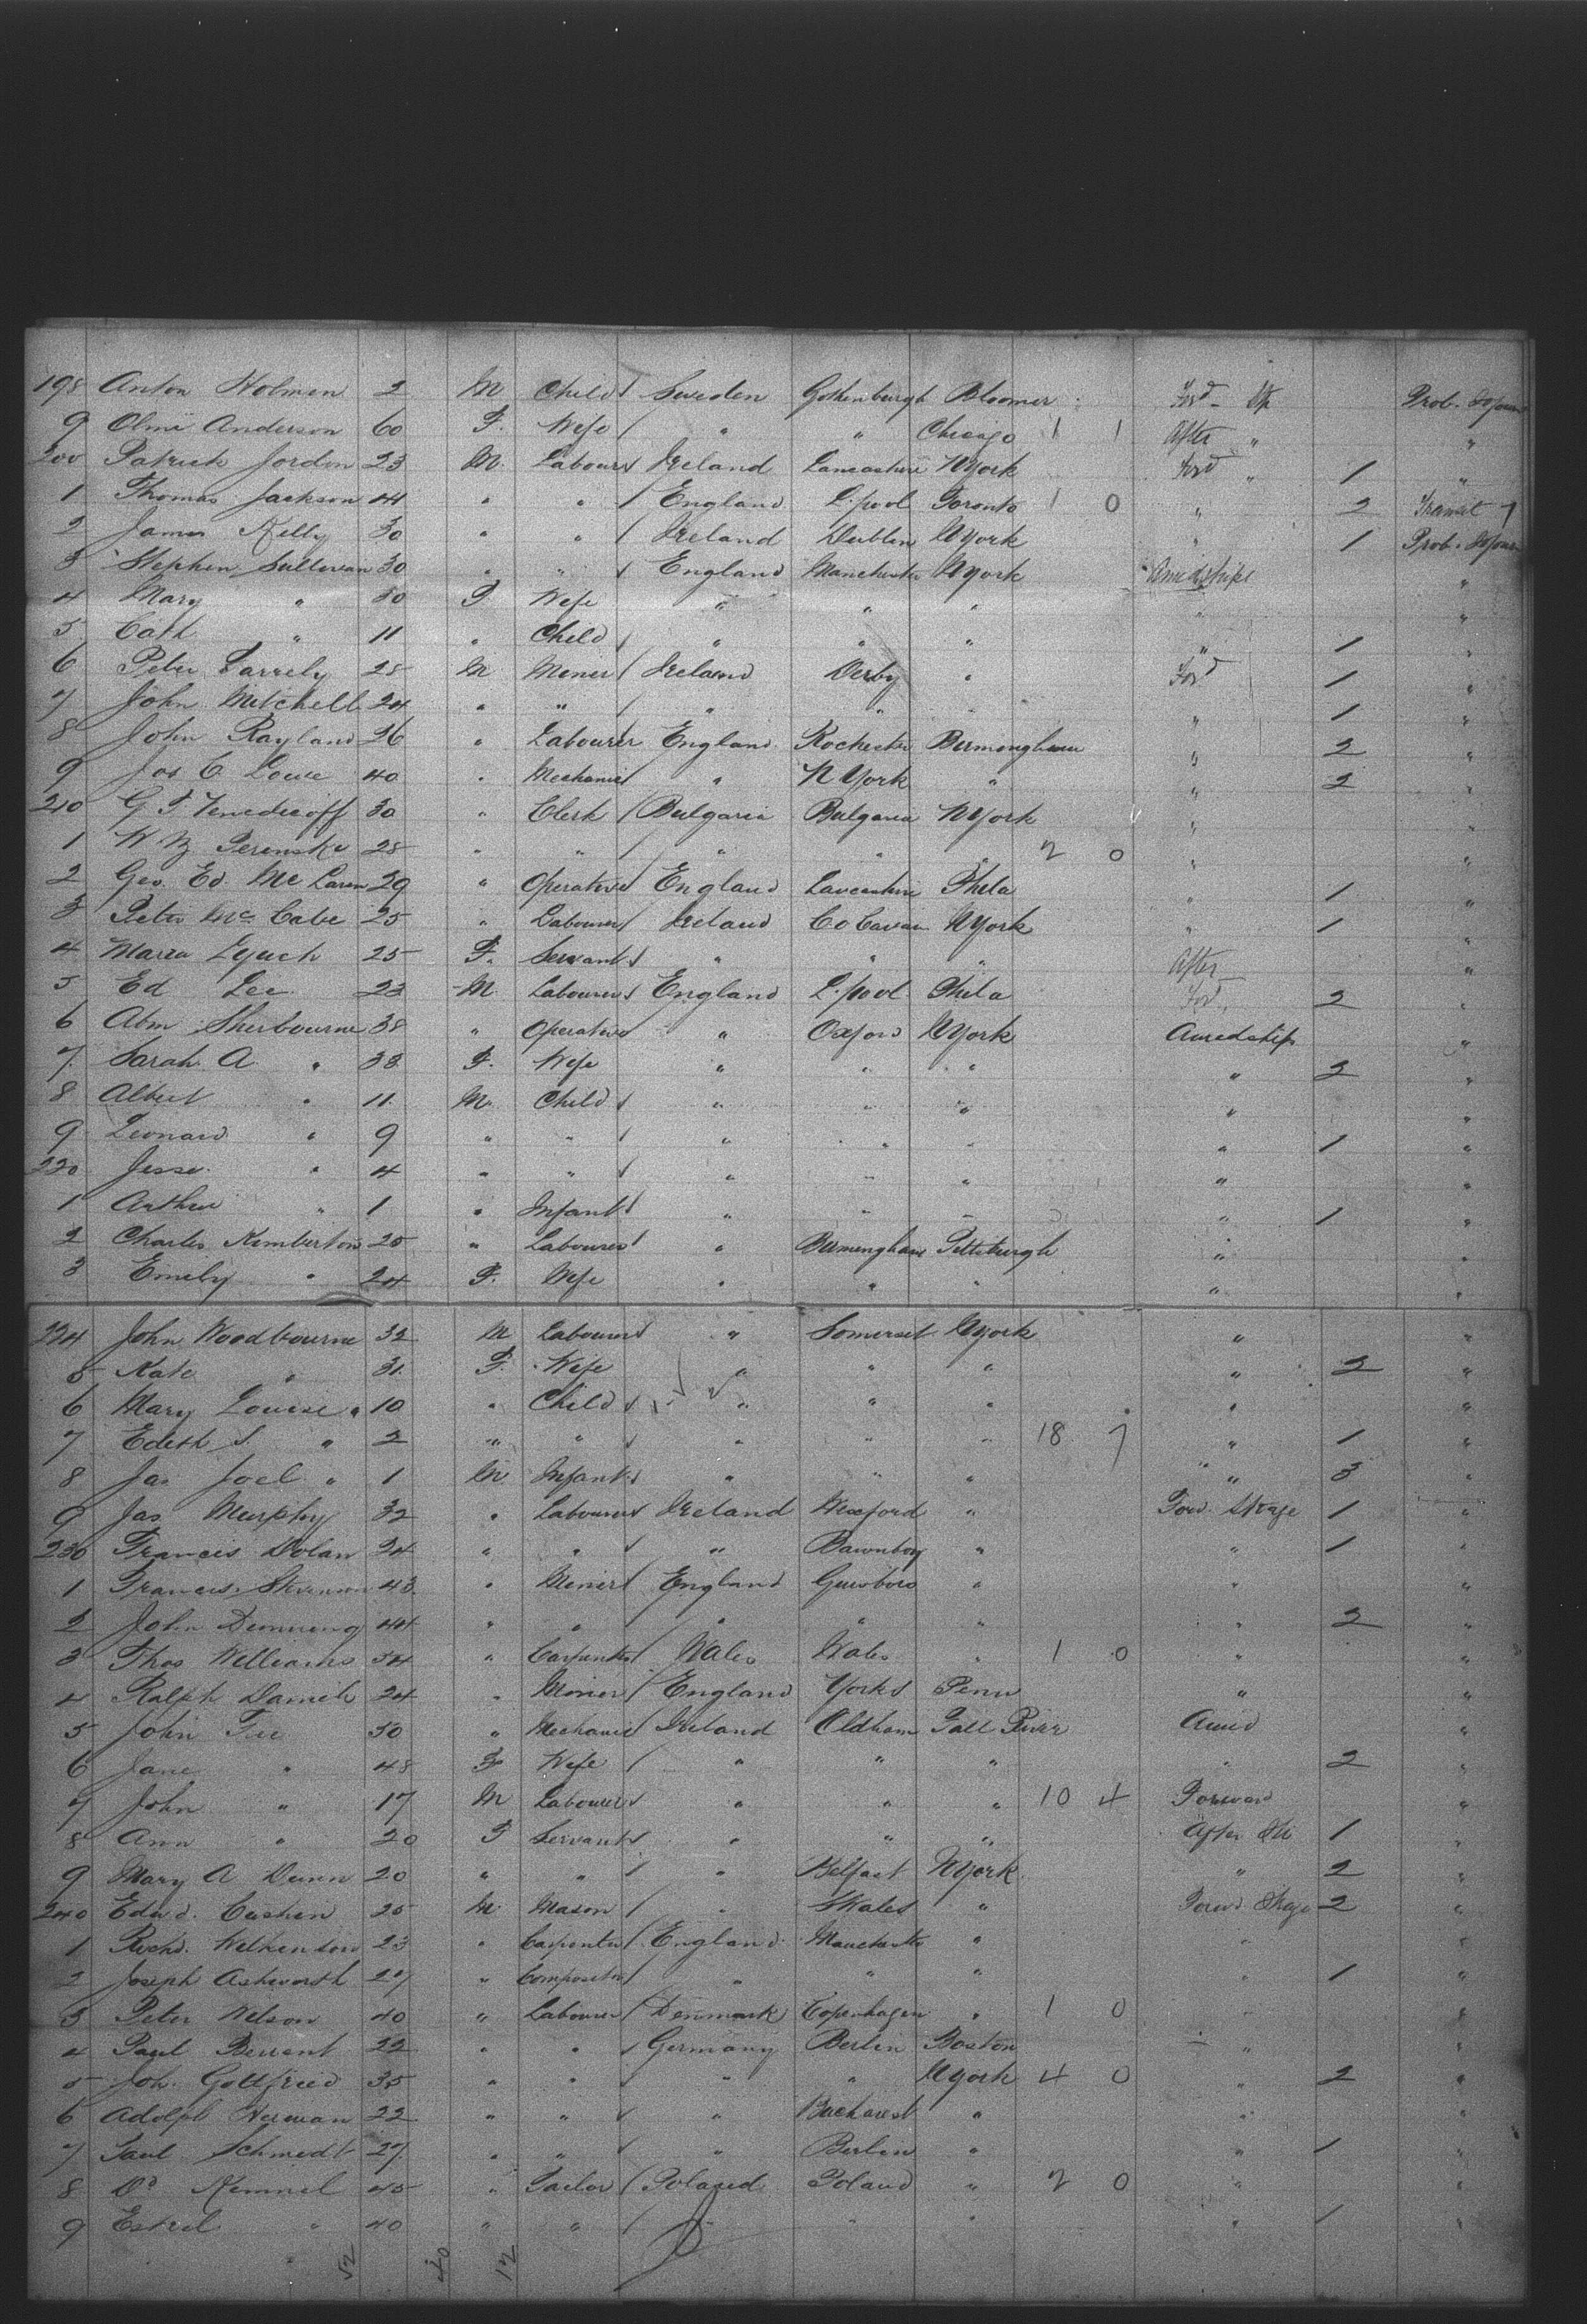 198 Anton Holmen 2 M Child Sweden Gothenburgh Bloomer Ford Stg Prob. Sojourn
9 Olmi Anderson 60 F. Wife " " Chicago 1 1 After " "
200 Patrick Jordon 23 M. Labourer Ireland Lancashire NYork Ford " 1 "
1 Thomas Jackson 44 " " England L.pool Toronto 1 0 " 2 Transit
2 James Kelly 30 " " Ireland Dublin NYork " 1 Prob. Sojourn
3 Stephen Sullivan 30 " " England Manchester NYork Amidships "
4 Mary " 30 F Wife " " " " "
5 Cath " 11 " Child " " " " 1 "
6 Peter Farrely 28 M Miner Ireland Derby " Ford 1 "
7 John Mitchell 24 " " " " " " 1 "
8 John Rayland 26 " Labourer England Rochester Birmingham " 2 "
9 Jos C. Lowe 40 " Mechanic " N York " " 2 "
210 G. F. 30 " Clerk Bulgaria Bulgaria NYork " "
1 W Z Perenske 28 " " " " " 2 0 " "
2 Geo. Ed. Mc Laren 29 " Operative England Lancashire Phela " 1 "
3 Peter Mc Cabe 25 " Labourer Ireland Co Cavan NYork " 1 "
4 Maria Lynch 25 F. Servant " " " After "
5 Ed Lee 23 M. Labourer England L.pool Phela Ford. 2 "
6 Abm Sherbourne 38 " Operative " Oxford NYork Amidship "
7. Sarah A. " 38 F. Wife " " " " 2 "
8 Albert " 11. M. Child " " " " "
9 Leonard " 9 " " " " " " 1 "
220 Jesse " 4 " " " " " " "
1 Arthur " 1 " Infant " " " " 1 "
2 Charles Kimberton 25 " Labourer " Birmingham Pittsburgh " "
3 Emily " 24 F. Wife " " " " "
224 John Woodbourne 32 M Labourer " Somerset NYork " "
5 Kate " 31. F. Wife " " " " 2 "
6 Mary Louise " 10 " Child " " " " "
7 Edith S. " 2 " " " " " 18 7 " 1 "
8 Jas Joel " 1 M. Infant " " " " 3 "
9 Jas Murphy 32 " Labourer Ireland Wexford " Forw. Strge 1 "
230 Francis Dolan 24 " " " Bawnboy " " 1 "
1 Francis Stevenson 43 " Miner England Guisboro " " "
2 John 44 " " " " " " 2 "
3 Thos Williams 54 " Carpenter Wales Wales " 1 0 " "
4 Ralph Daniels 24 " Miner England Yorks Penn " "
5 John Fee 50 " Mechanic Ireland Oldham Fall River Amid "
6 Jane " 48 F Wife " " " " 2 "
7 John " 17 M Labourer " " " 10 4 Forward "
8 Ann " 20 F Servant " " " After 1 "
9 Mary A Dunn 20 " " " Belfast NYork " 2 "
240 Edwd. Cushin 25 M. Mason " " Forwd Strge 2 "
1 Richd. Wilkinson 23 " Carpenter England Manchester " " "
2 Joseph Ashworth 27 " Compositor " " " " 1 "
3 Peter Nelson 40 " Labourer Denmark Copenhagen " 1 0 " "
4 Paul 22 " " Germany Berlin Boston " "
5 Joh. Gottfried 35 " " " " NYork 4 0 " 2 "
6 Adolph Herman 22 " " " Bucharest " " "
7 Paul Schmidt 27 " " " Berlin " " 1 "
8 Kemmel 45 " Tailor Poland Poland " 2 0 " "
9 " 40 " " " " " " 1 "
52 40 12